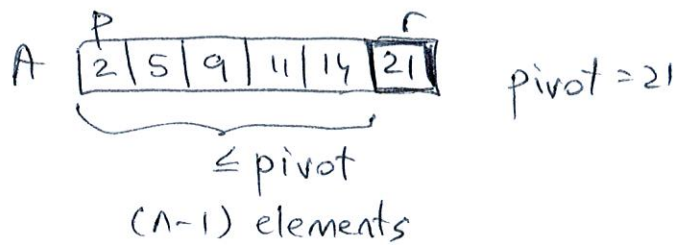 p r
A 2 5 9 11 14 21 pivot = 21
≤ pivot
(n-1) elements